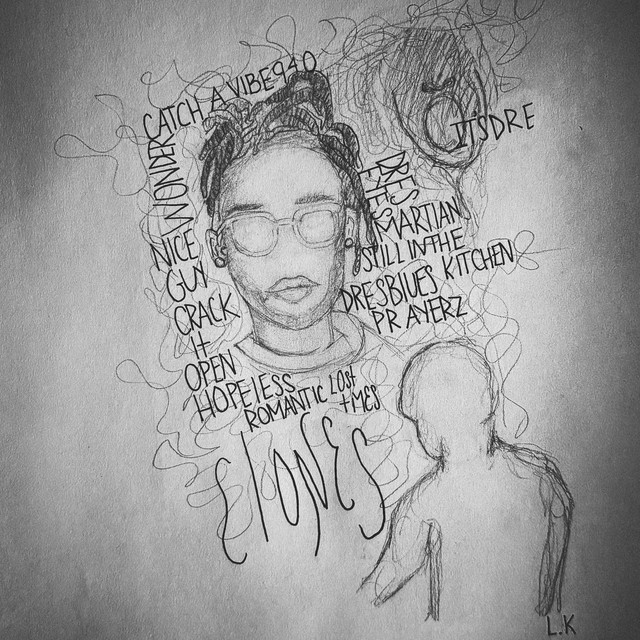 CATCH A VIBE940
ITSDRE
WONDER
NICE
GUY
CRACK
It
OPEN
HOPELESS
ROMANTIC LOST
tMES
DRES
MARTIAN
STILL IN THE
KITCHEN
DRESBLUES
PRAYERZ
clones
L.K